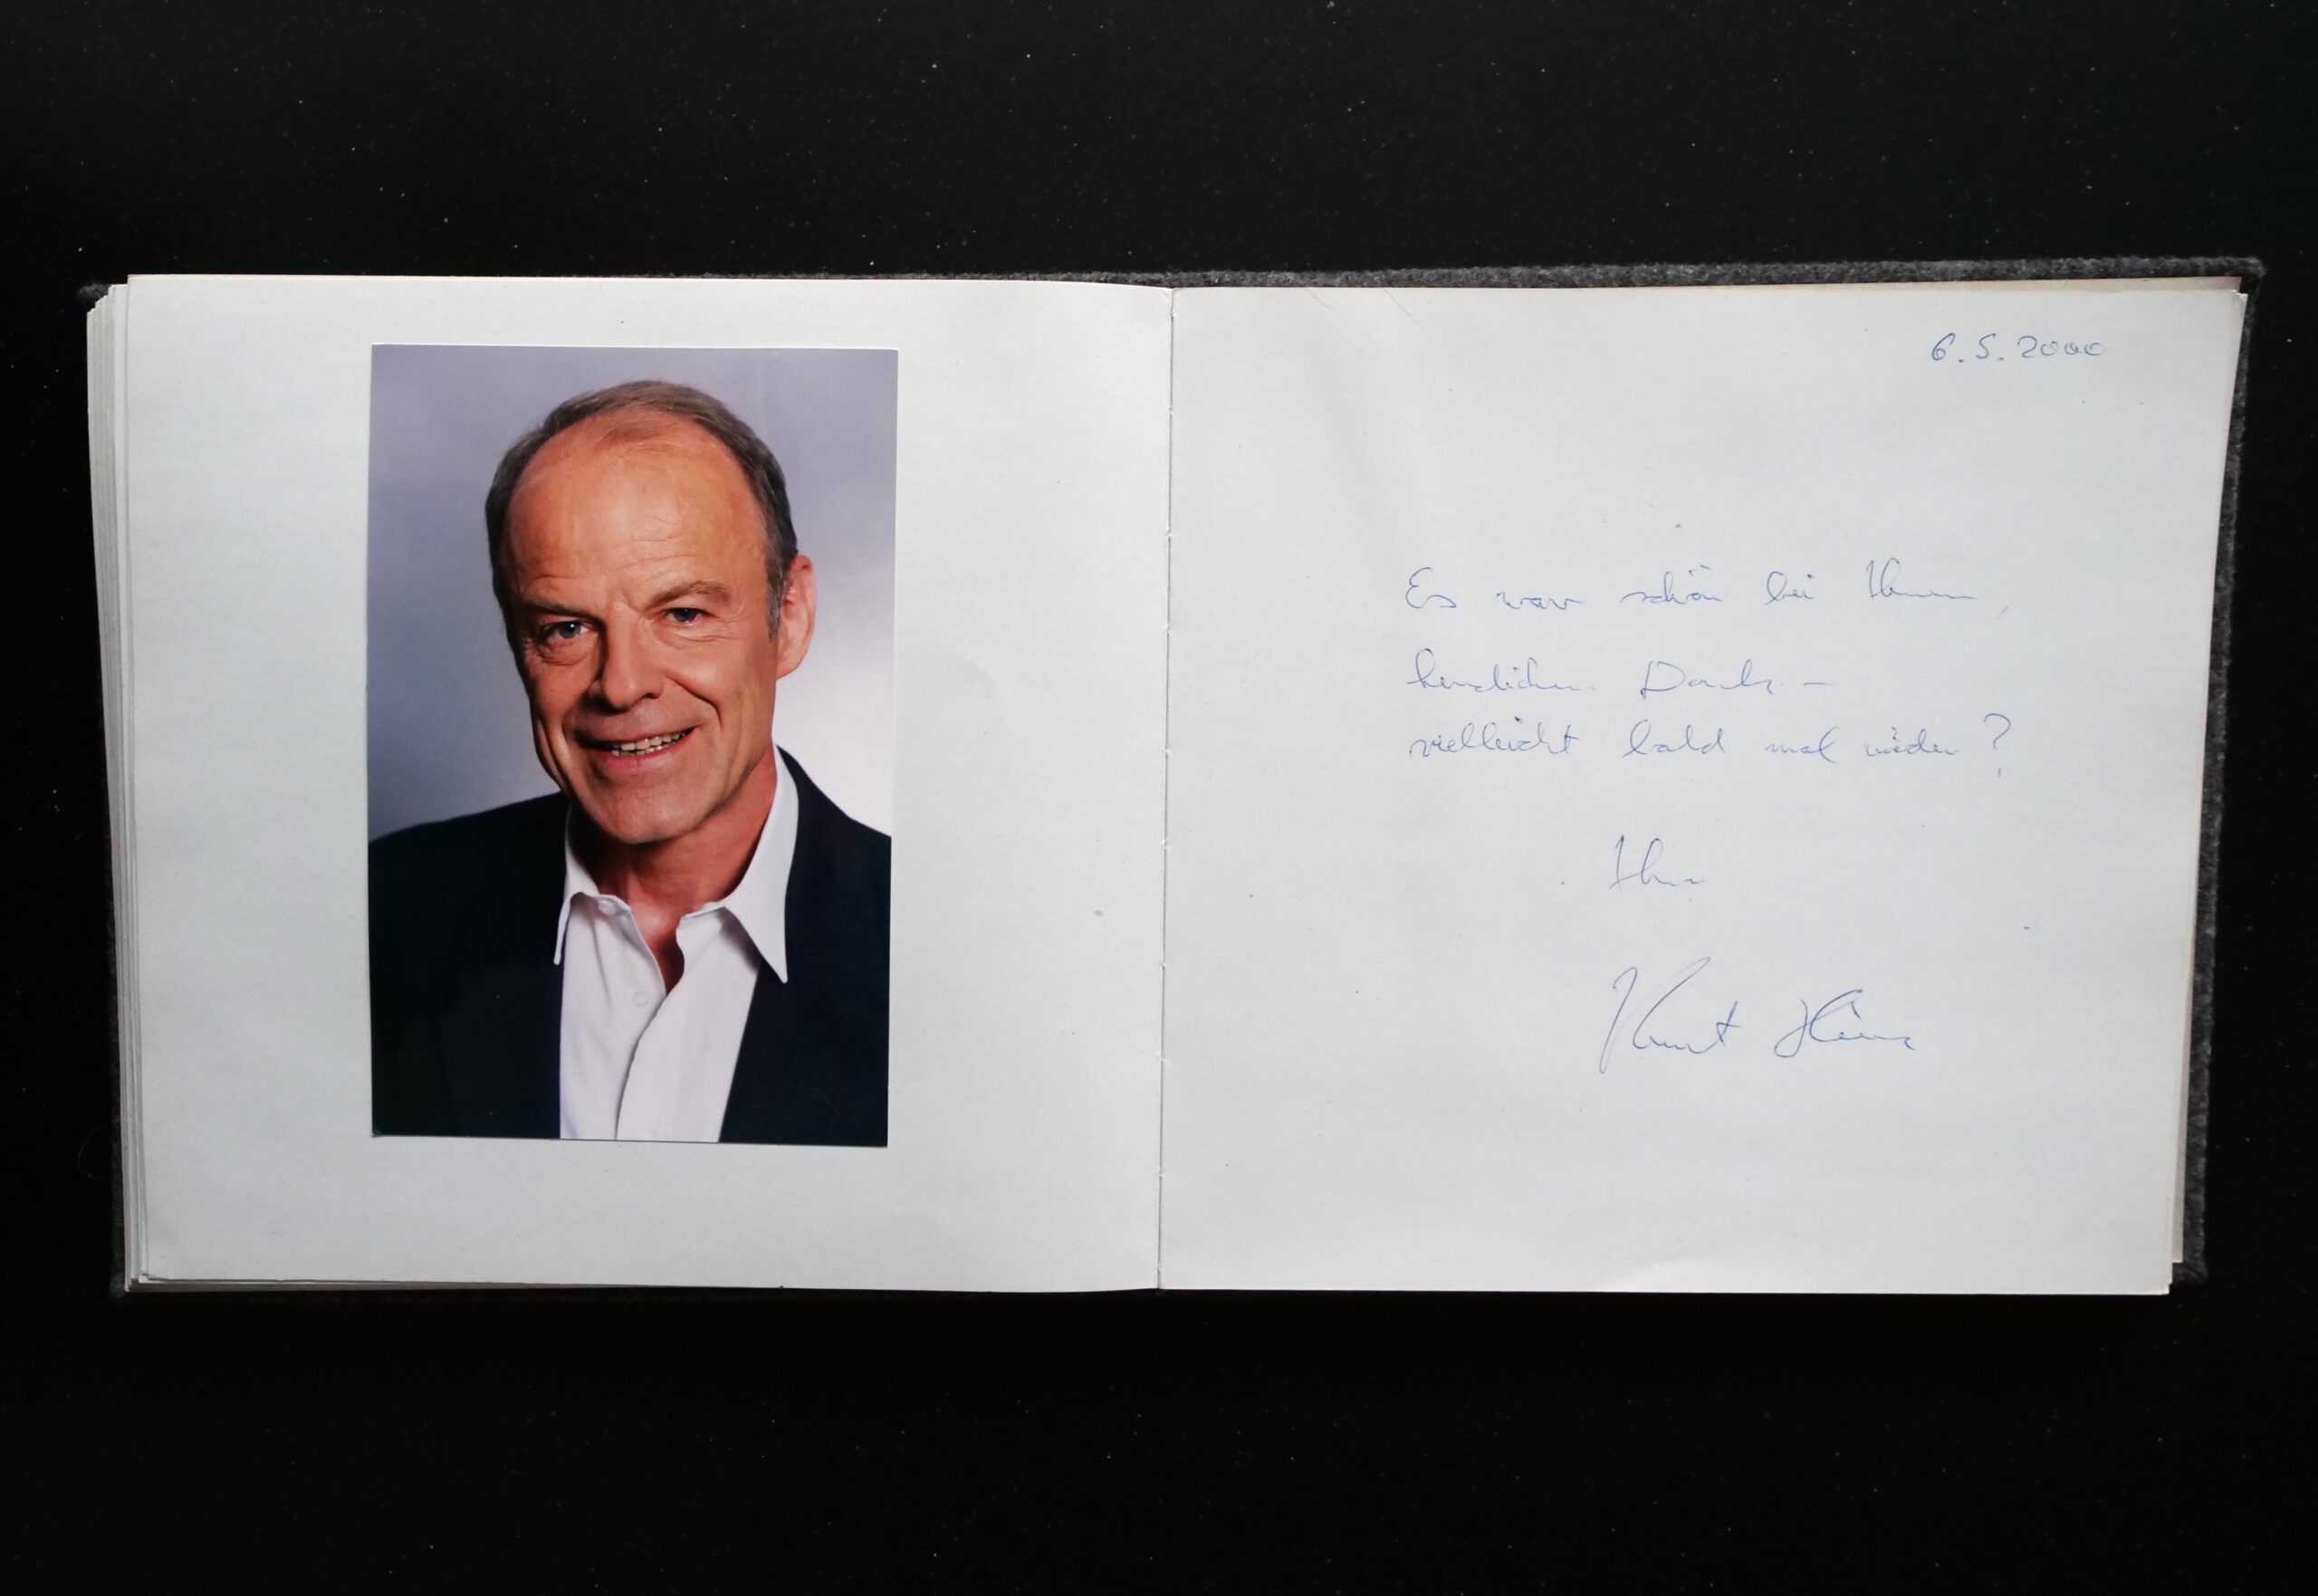 6.5.2000
Es war schön bei Ihnen,
herzlichen Dank. –
vielleicht bald mal wieder?
Ihr
Kurt